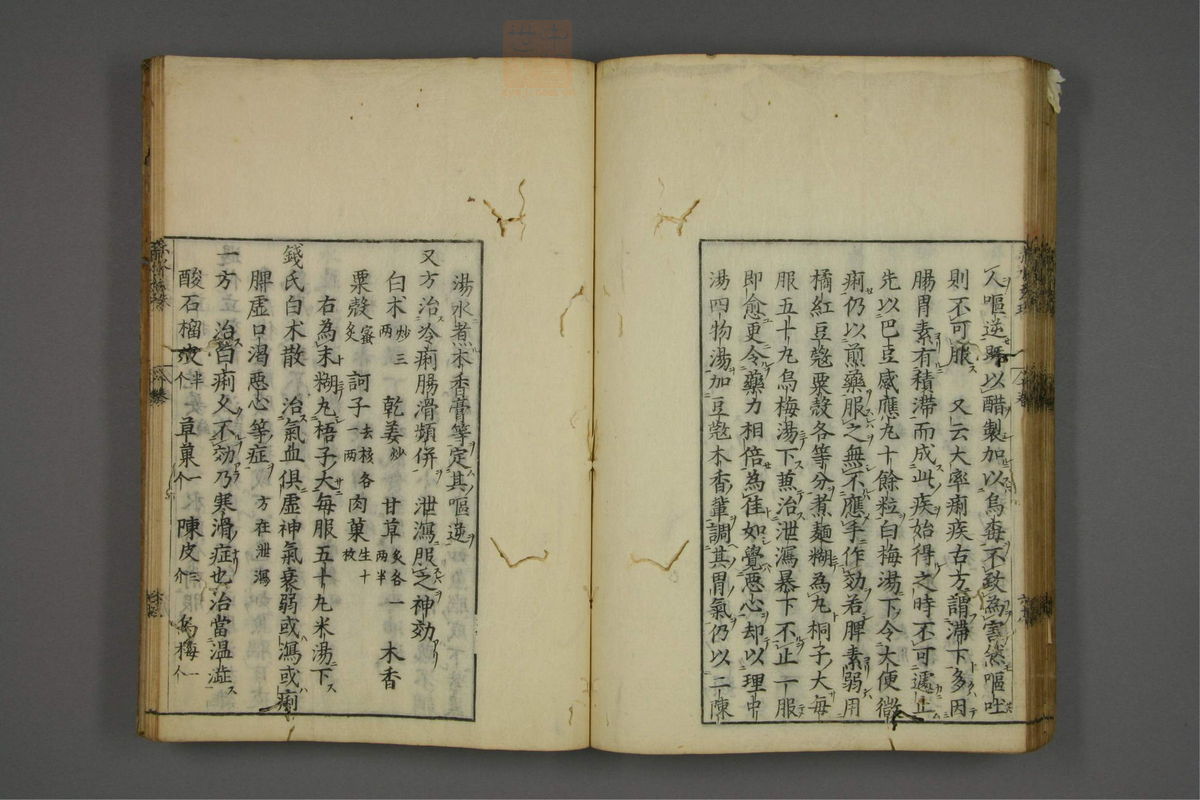 人嘔逆既以醋製加以烏梅不致為害然嘔吐
則不可服　又云大率痢疾古方謂滯下多因
腸胃素有積滯而成此疾始得之時不可遽止
先以巴豆感應丸十餘粒白梅湯下令大便微
痢仍以煎藥服之無不應手作効若脾素弱用
橘紅豆蔲粟殼各等分煮麵糊為丸桐子大每
服五十九烏梅湯下兼治泄瀉暴下不止一服
即愈更令藥力相倍為佳如覺悪心却以理中
湯四物湯加豆蔲木香輩調其胃氣仍以二陳
湯水煮木香膏等定其嘔逆
又方治冷痢腸滑頻併　泄瀉服之神効
白朮炒三两　乾姜炒　甘草炙各一两半　木香
粟殼蜜炙　訶子去核各一两　肉菓生十枚
右為末糊丸梧子大每服五十九米湯下
錢氏白朮散　治氣血俱虛神氣衰弱或瀉或痢
脾虛口渴悪心等症　方在泄瀉
一方　治白痢久不効乃寒滑症也治當温澁
酸石榴皮半个　草菓一个　陳皮三个　烏梅一个